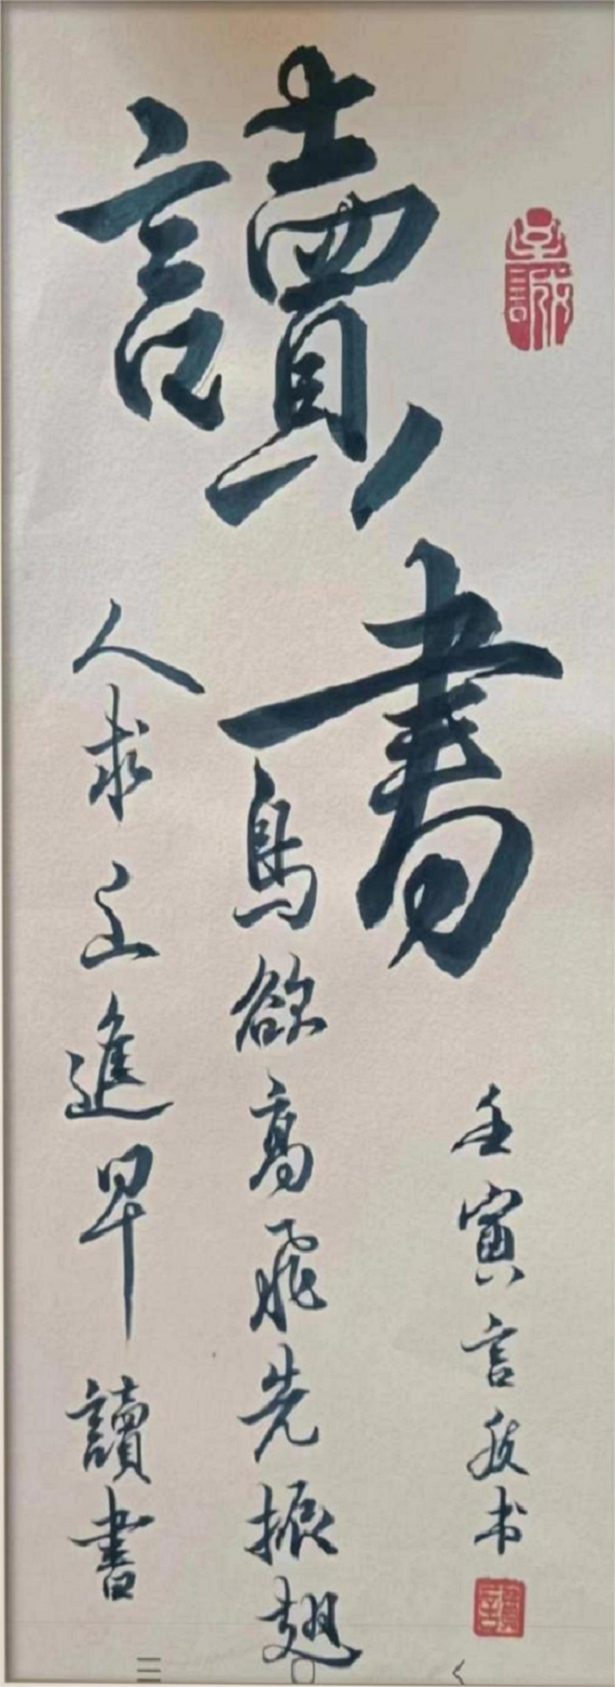 讀書
鳥欲高飛先振翅
人求上進早讀書
壬寅言书